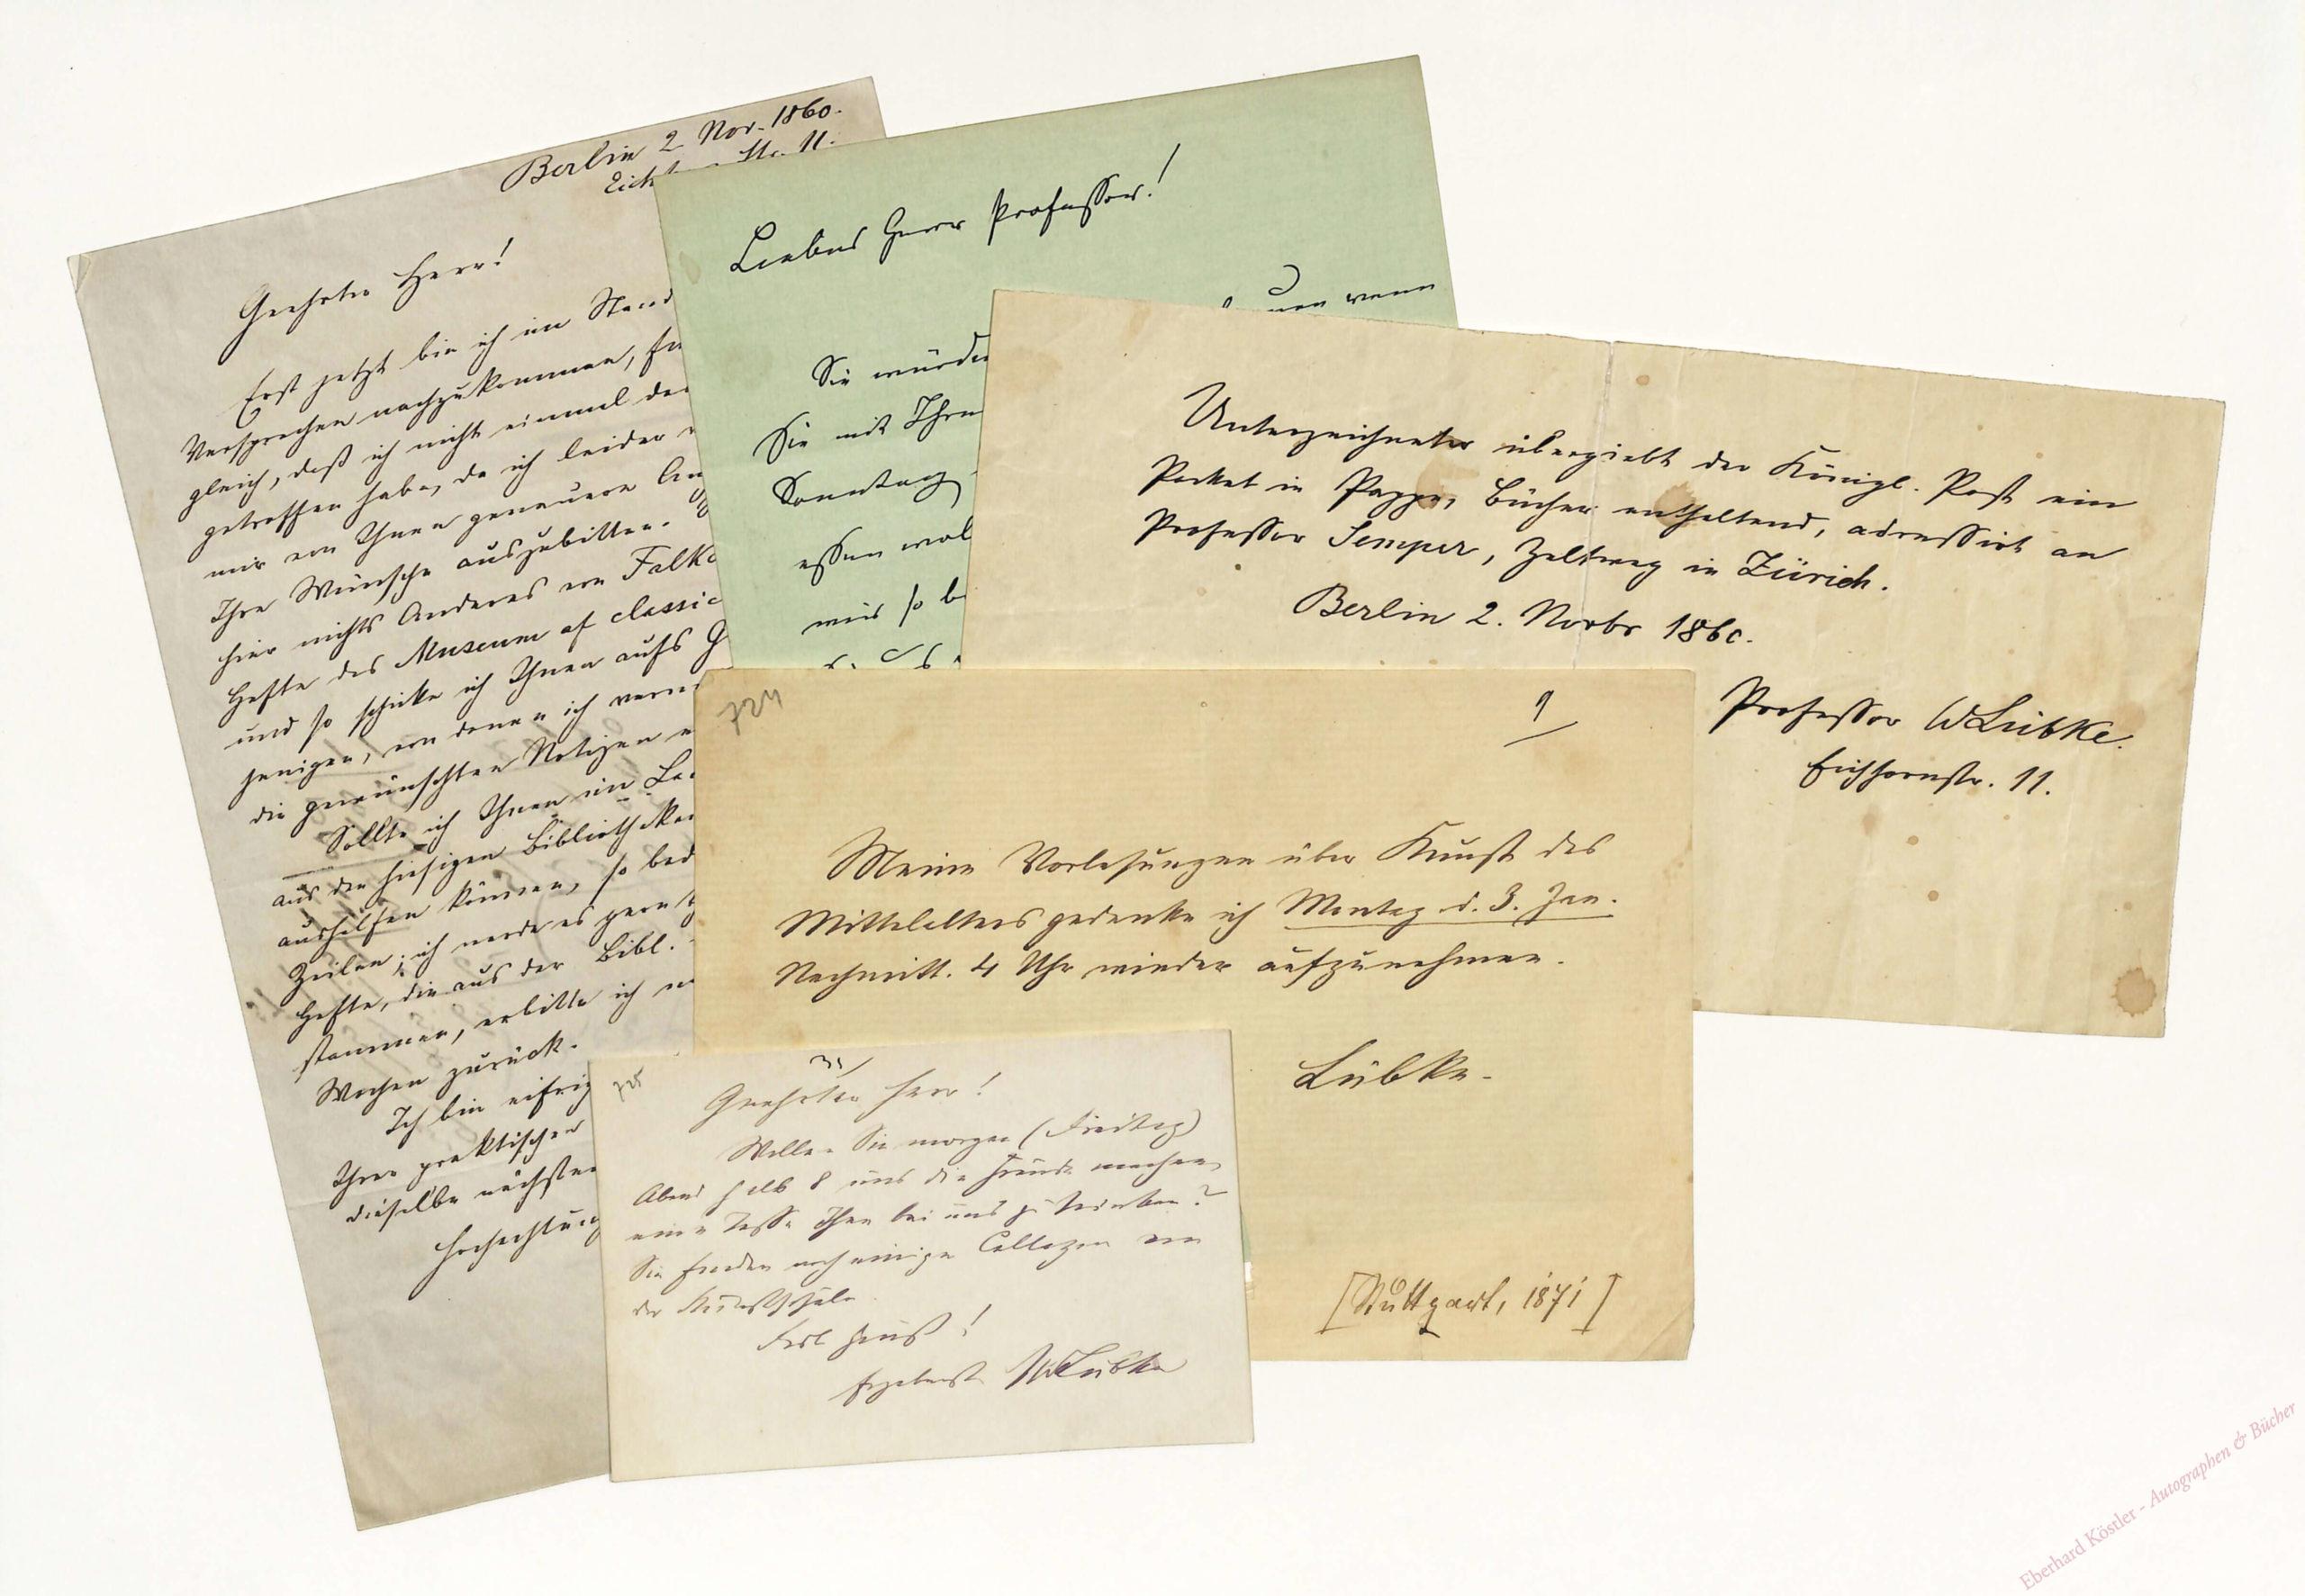 Berlin 2. Nov. 1860.
Str. 11.
Geehrter Herr!
Erst jetzt bin ich im Stand
Versprechen nachzukommen,
gleich, daß ich nicht einmal das
getroffen habe, da ich leider
mir von Ihnen genauere
Ihre Wünsche auszubitten.
hier nichts Anderes von Falk
Hefte des Museum of classic
und so schicke ich Ihnen aufs
jenigen, von denen ich
die gewünschten Notizen
Sollte ich Ihnen
aus den hiesigen Bibliotheken
aushelfen können, so
Zeilen; ich werde es gern
Hefte, die aus der Bibl.
stammen, erbitte ich
Wochen zurück.
Ich bin eifrig
Ihrer praktischen
dieselbe nächstens
Hochachtung
Liebes Herr Professor!
wenn
Sie würden
Sie mit Ihren
Sonntag
essen wol
mir so
Unterzeichneter übergiebt der Königl. Post ein
Packet in Pappe, Bücher enthaltend, adressirt an
Professor Semper, Zeltweg in Zürich.
Berlin 2. Novbr 1860.
Professor WLübke.
Eichhornstr. 11.
724
1
Meine Vorlesungen über Kunst des
Mittelalters gedenke ich Montag d. 3. Jan.
Nachmitt. 4 Uhr wieder aufzunehmen.
Lübke.
[Stuttgart, 1871]
725
Geehrter Herr!
Wollen Sie morgen (Freitag)
Abend halb 8 uns die Freude machen,
eine Tasse Thee bei uns zu trinken?
Sie finden noch einige Collegen von
der Kunstschule.
Gruß!
Ergebenst WLübke
Eberhard Köstler - Autographen & Bücher